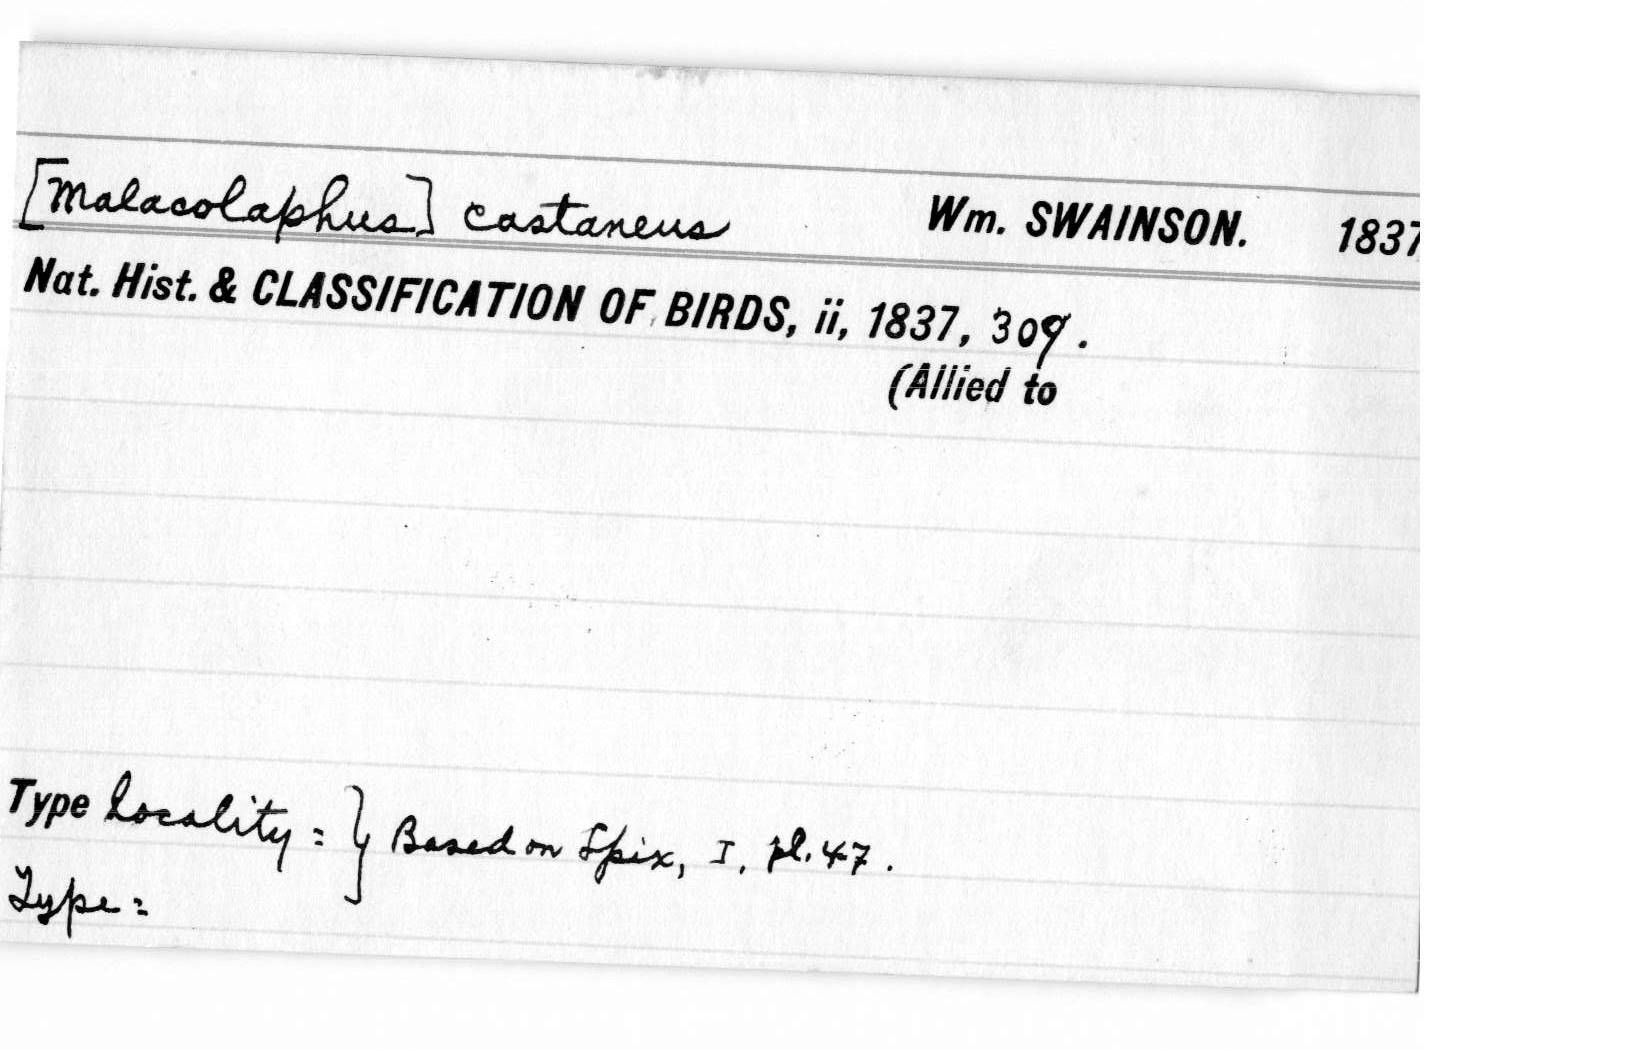 [Malacolaphus] castaneus Wm. SWAINSON. 1837
Nat. Hist. & CLASSIFICATION OF BIRDS, ii, 1837, 309.
(Allied to
Type locality = } Based on Spix, I, pl. 47.
Type =